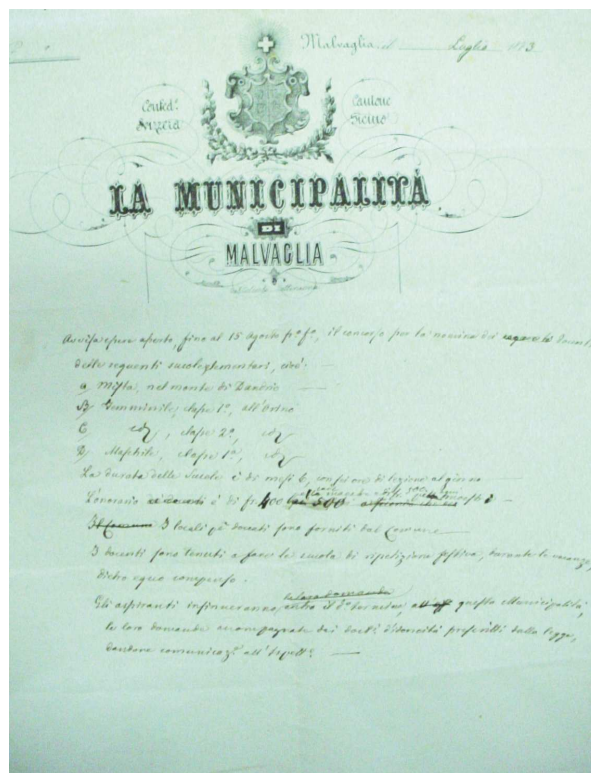 Malvaglia, il Luglio 1883.
Confed.e Svizzera
Cantone Ticino
LA MUNICIPALITÀ
DI
MALVAGLIA
Avvisa essere aperto, fino al 15 Agosto p.o f.o, il concorso per la nomina dei docenti
delle seguenti scuole elementari, cioè:
a) Mista, nel monte di Dandrio
B) Femminile, classe 1a, all'Orino
C) id, classe 2a, id
D) Maschile, classe 1a, id
La durata delle Scuole è di mesi 6, con più ore di lezione al giorno
L'onorario è di fr. 400 500
Il Comune I locali pei docenti sono forniti dal Comune
I docenti sono tenuti a fare la scuola di ripetizione festiva, durante le vacanze,
dietro equo compenso.
la loro domanda
Gli aspiranti insinueranno, entro il d.o termine, questa Municipalità,
le loro domande accompagnate dai doc.ti d'idoneità prescritti dalla legge,
dandone comunicaz.e all'Ispett.e